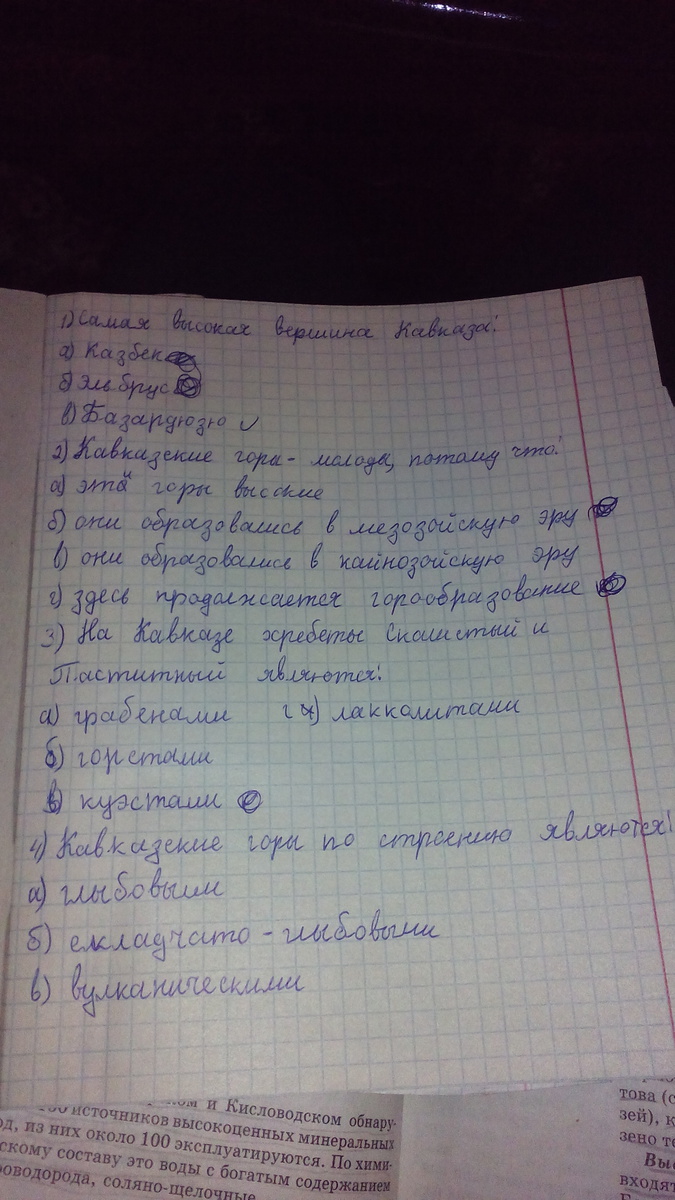 1) Самая высокая вершина Кавказа:
а) Казбек
б) Эльбрус
в) Базардюзю
2) Кавказские горы - молоды, потому что:
а) эти горы высокие
б) они образовались в мезозойскую эру
в) они образовались в кайнозойскую эру
г) здесь продолжается горообразование
3) На Кавказе хребеты Скалистый и
Паститный являются:
а) грабенами г) лакколитами
б) горстами
в) куэстами
4) Кавказские горы по строению являются:
а) глыбовыми
б) складчато - глыбовыми
в) вулканическими
и Кисловодском обнару-
источников высокоценных минеральных
од, из них около 100 эксплуатируются. По хими-
скому составу это воды с богатым содержанием
роводорода, соляно-щелочные
това (с
зей), к
зено те
Выс
входят